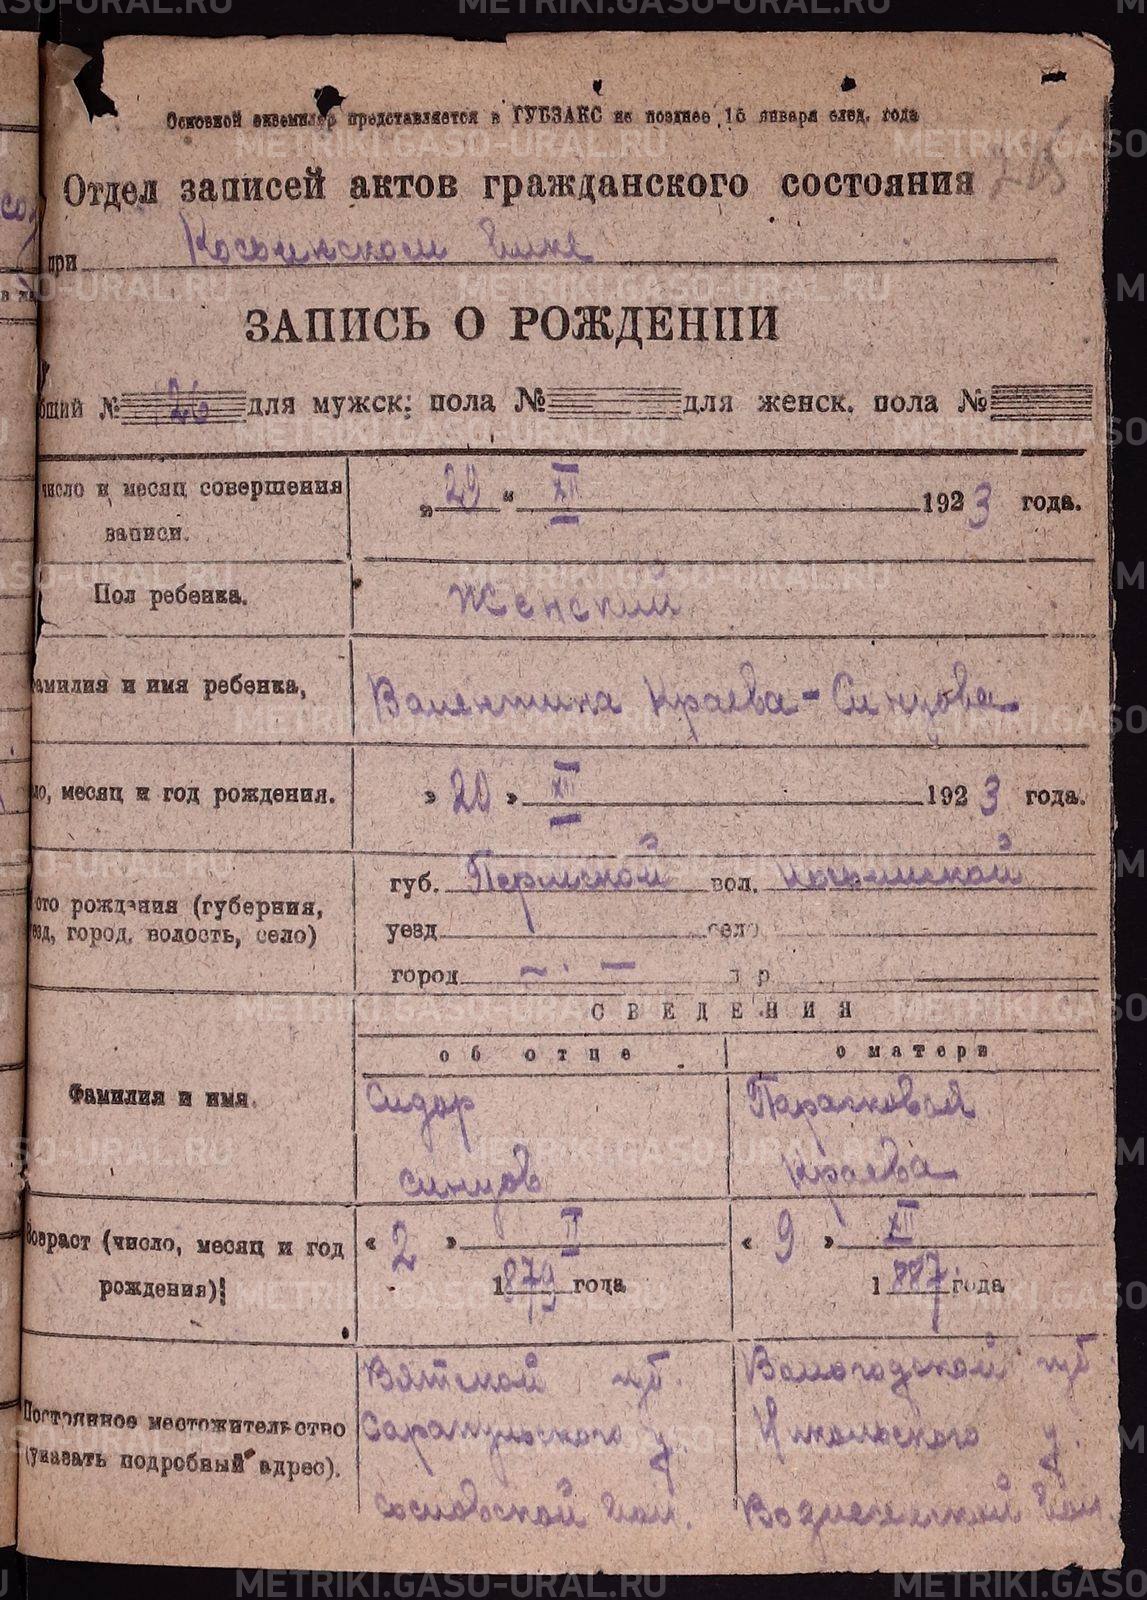 METRIKI.GASO-URAL.RU
Основной экземпляр представляется в ГУБЗАКС не позднее 15 января след. года
Отдел записей актов гражданского состояния
при
ЗАПИСЬ О РОЖДЕНИИ
бщий № 126 для мужск: пола № для женск. пола №
число и месяц совершения записи.
„ 29 “ XII 1923 года.
Пол ребенка.
Женский
амилия и имя ребенка,
Валентина Краева-Синцова
ло, месяц и год рождения.
„ 20 „ XII 1923 года.
сто рождения (губерния,
езд, город, волость, село)
губ. Пермской вол.
уезд село
город
СВЕДЕНИЯ
об отце
о матери
Фамилия и имя.
Сидор
Синцов
Парасковья
Краева
Возраст (число, месяц и год
рождения):
« 2 » II
1879 года
« 9 » XII
1887 года
Постоянное местожительство
(указать подробный адрес).
Вятской губ.
Сарапульского у.
Сосновской
Вологодской губ.
Никольского у.
Вознесенской